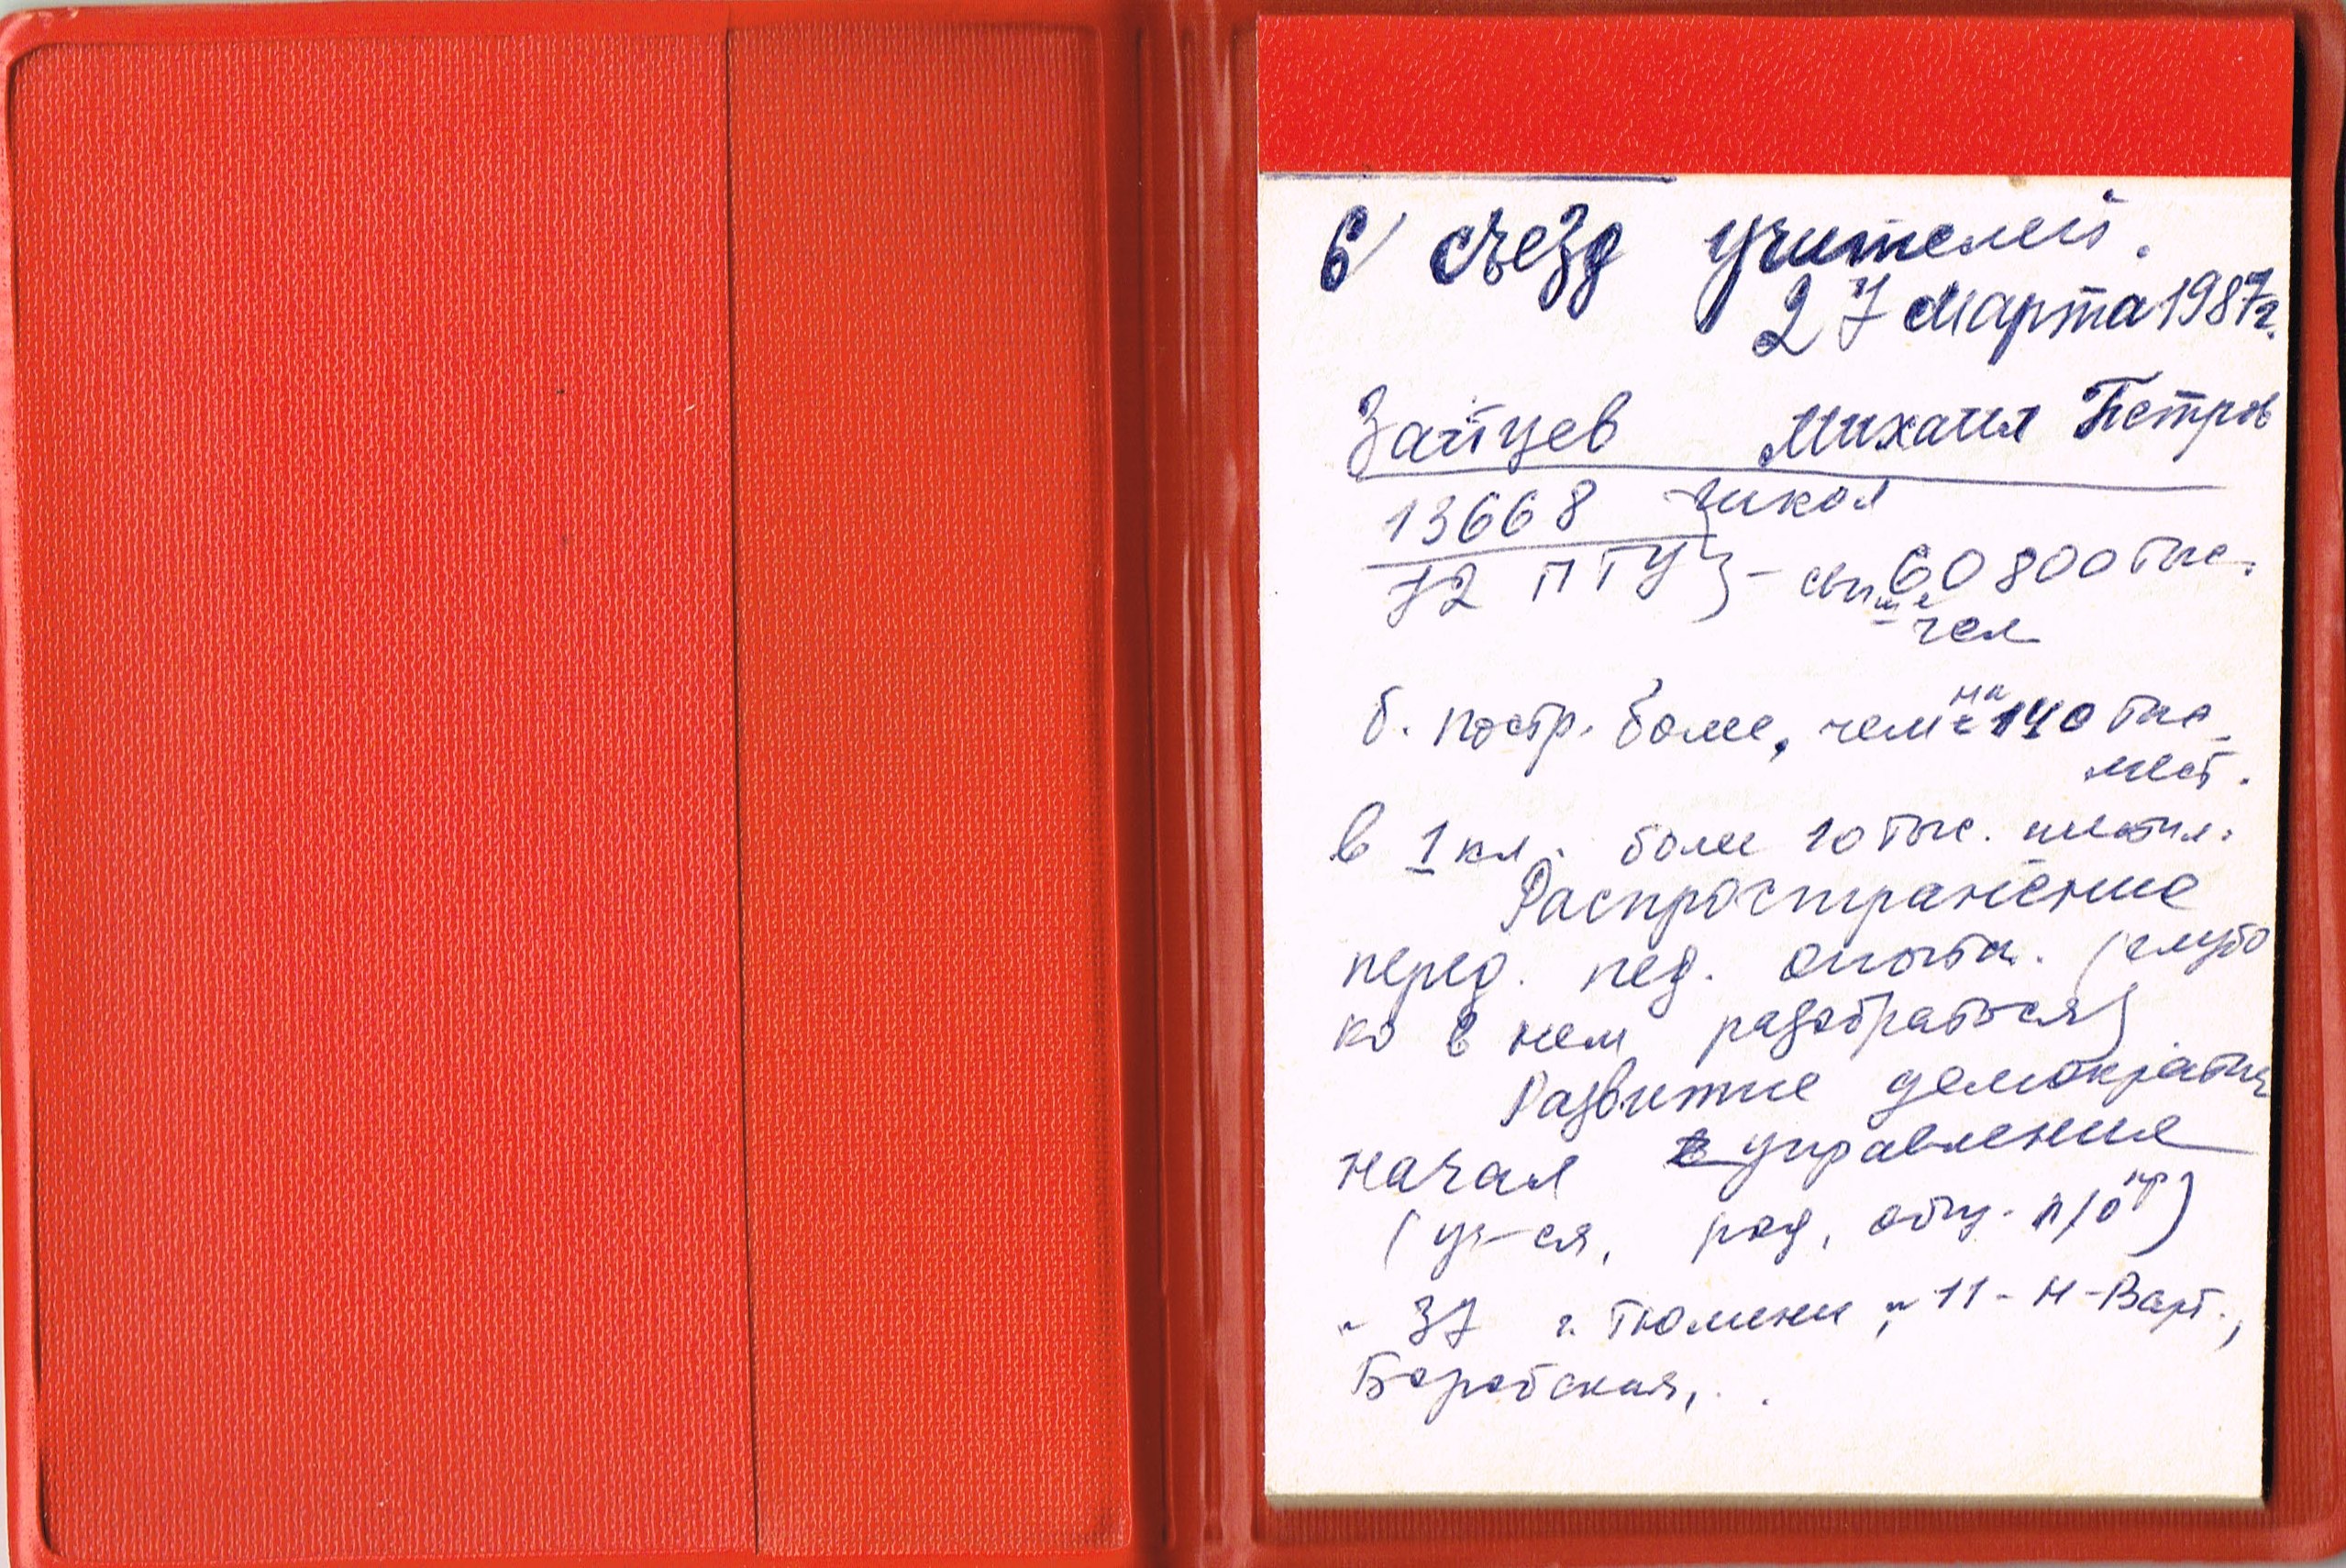 6 съезд учителей.
27 марта 1987г.
Зайцев Михаил Петров
13668 школ
72 ПТУ} - свыше 60 800 тыс.
чел
б. постр. более, чем на 140 тыс
мест.
в 1 кл. более 10 тыс. шестил.
Распространение
перед. пед. опыта. (глубо
ко в нем разобраться)
Развитие демократич
начал в управлении
(уч-ся, род, общ. п/о пр)
" 37 г. Тюмени, " 11 - Н-Варт.,
Боровская, . .